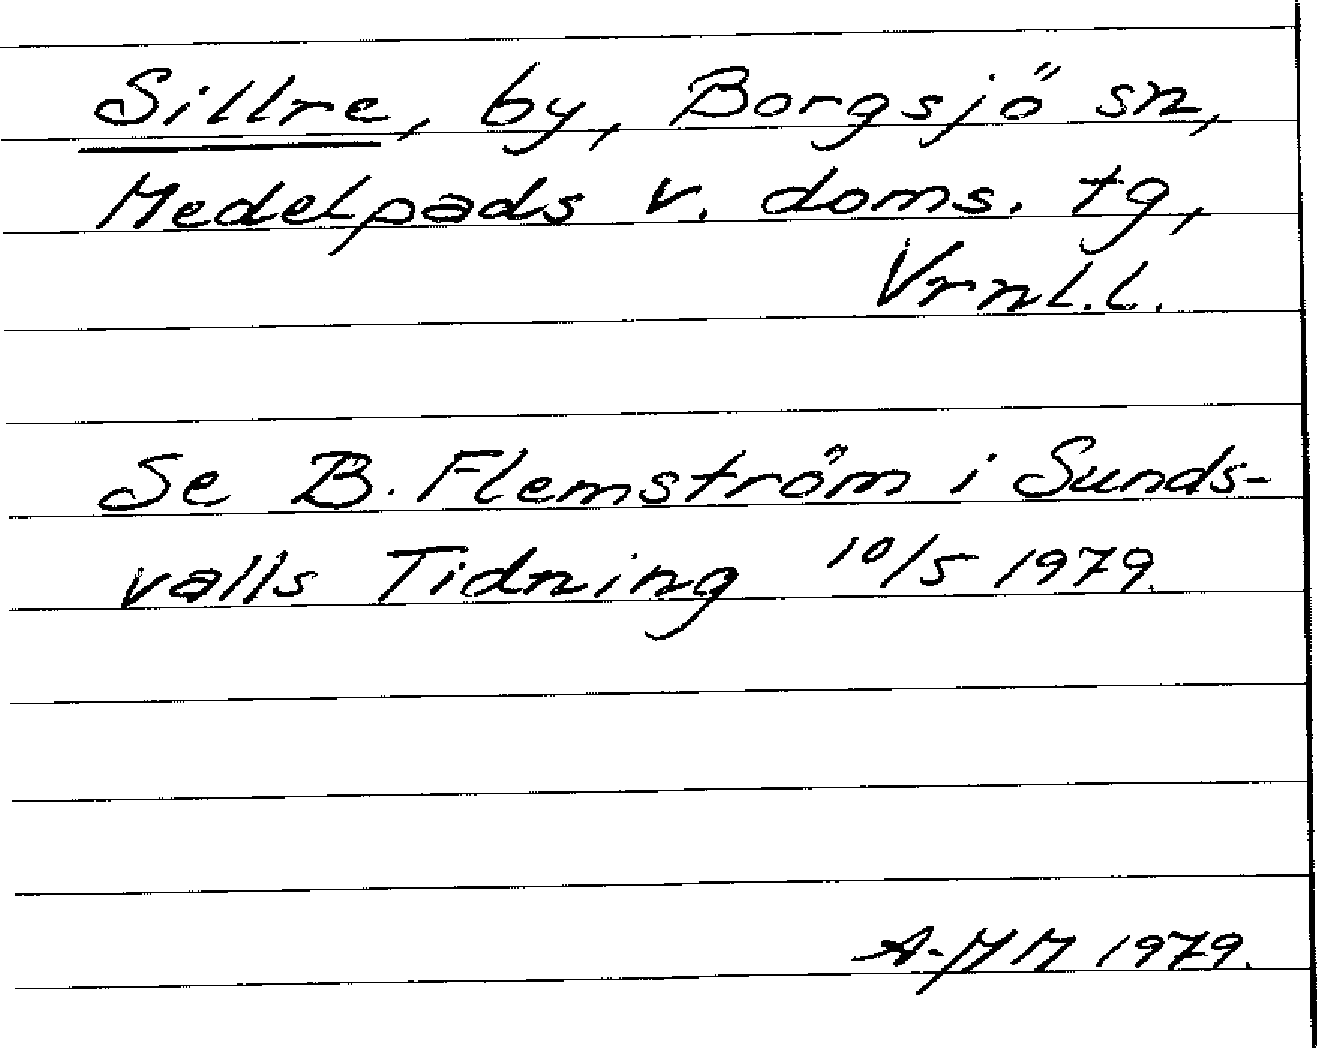 Sillre, by, Borgsjö sn,
Medelpads v. doms. tg,
Vrnl.l.
Se B. Flemström i Sunds-
valls Tidning 10/5 1979.
A-MM 1979.